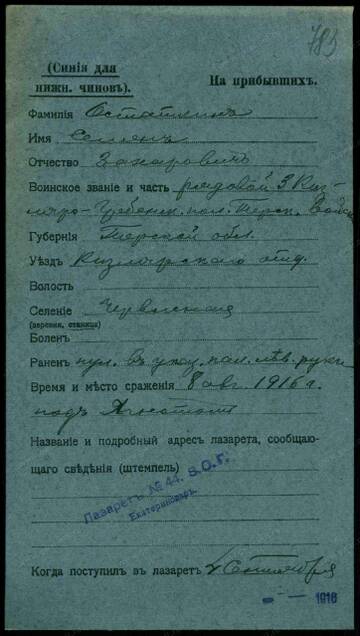 783
(Синія для
нижн. чиновъ).
На прибывшихъ.
Фамилія Остаткинъ
Имя Семенъ
Отчество Захаровичъ
Воинское званіе и часть рядовой 3 Киз-
ляро-Гребенск. пол. Терск. Войск
Губернія Терской обл.
Уѣздъ Кизлярскаго отд.
Волость
Селеніе Червленная
(деревня, станица)
Боленъ
Раненъ пул. въ указ. пал. лѣв. руки
Время и мѣсто сраженія 8 авг. 1916 г.
подъ
Названіе и подробный адресъ лазарета, сообщаю-
щаго свѣдѣнія (штемпель)
Лазаретъ № 44. В.О.Г.
Екатеринодаръ.
Когда поступилъ въ лазаретъ 4 Сентября
1916